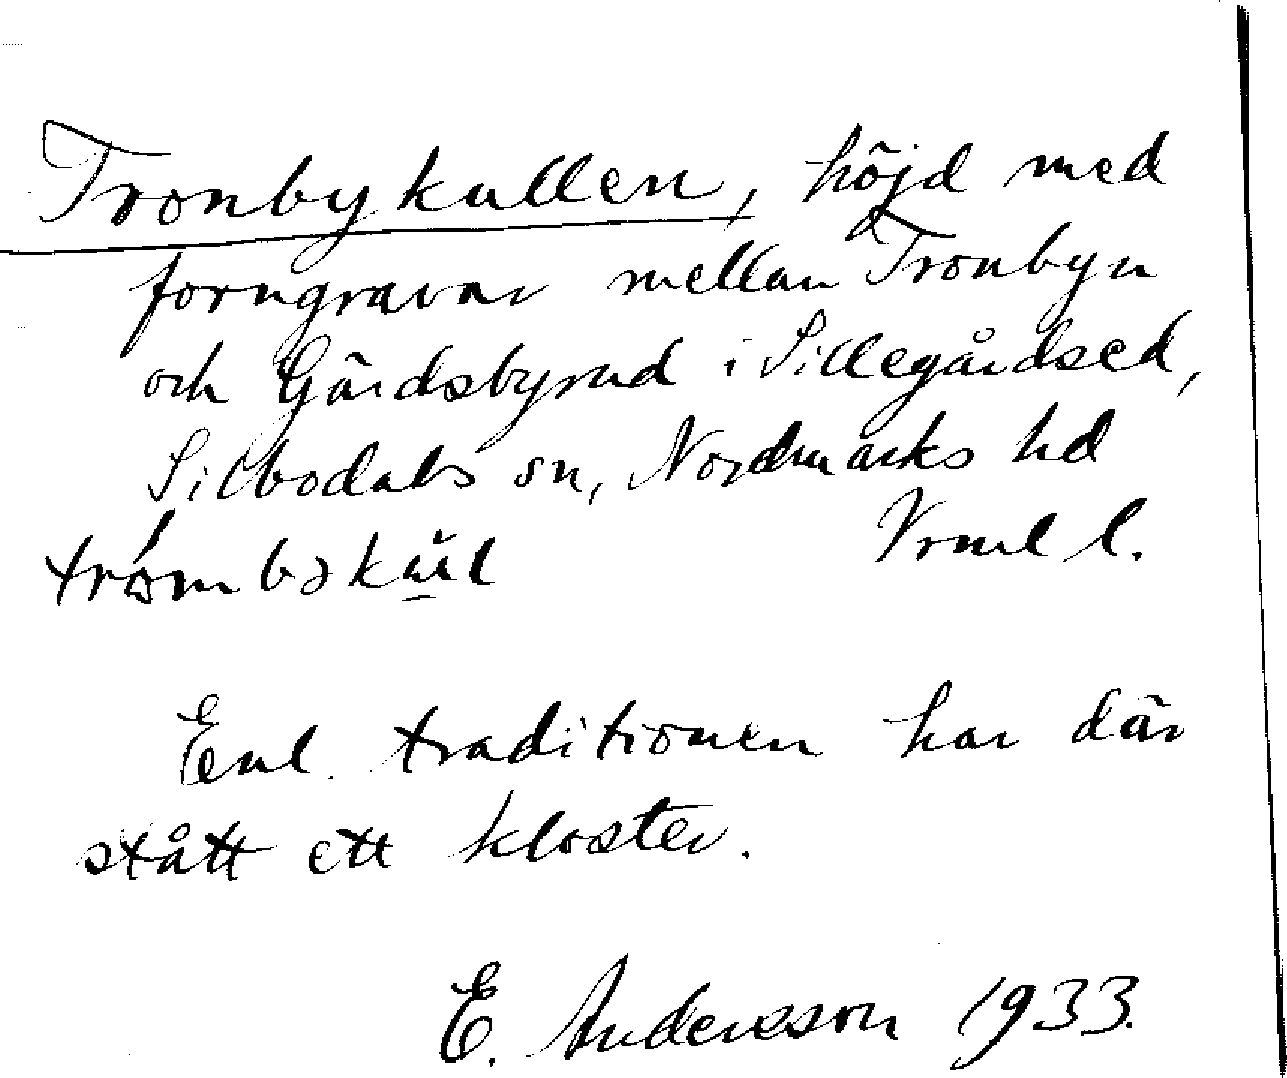 Tronbykullen, höjd med
forngravar mellan Tronbyn
och Gärdsbyrud i Sillegårdsed,
Silbodals sn, Nordmarks hd
Vrml l.
Enl. traditionen har där
stått ett kloster.
E. Andersson 1933.